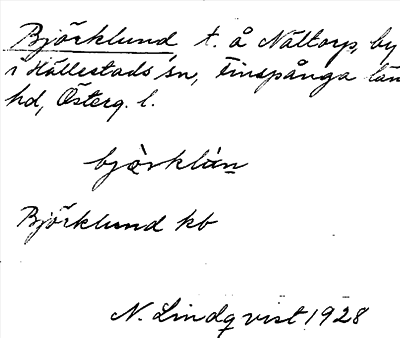 Björklund t. å Nältorp, by
i Hällestads sn, Finspånga län
hd, Österg. l.
bjò̤rklùn
Björklund kb
N. Lindqvist 1928